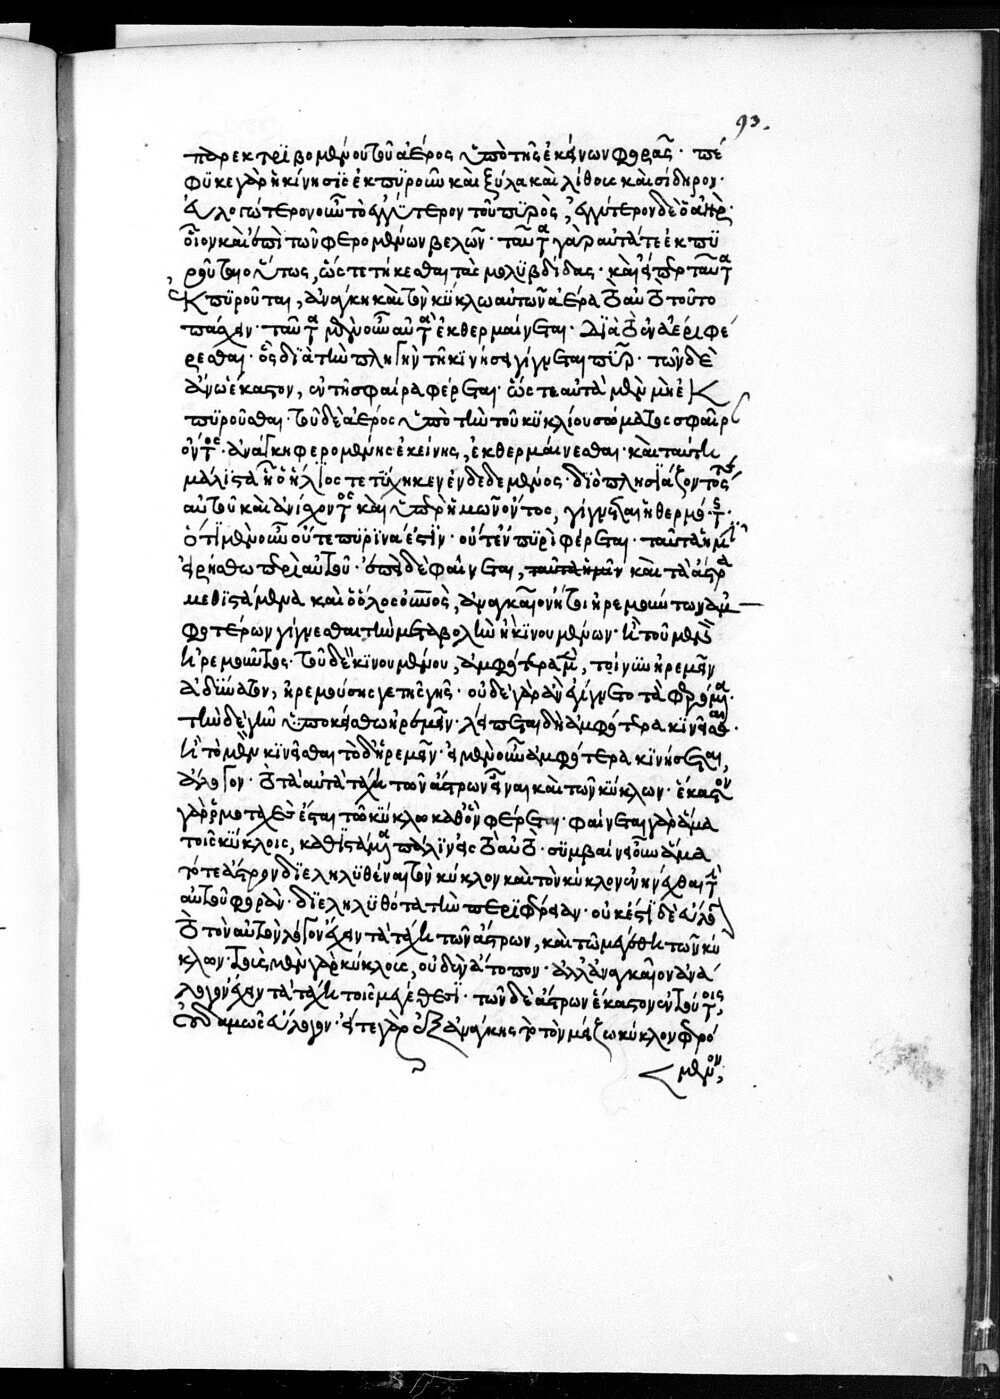 93.
παρεκτριβομένου τοῦ ἀέρος ὑπὸ τῆς ἐκείνων φορᾶς· πέ
φυκε γὰρ ἡ κίνησις ἐκπυροῦν καὶ ξύλα καὶ λίθους καὶ σίδηρον·
εὐλογώτερον οὖν τὸ ἐγγύτερον τοῦ πυρὸς, ἐγγύτερον δὲ ὁ ἀὴρ·
οἷον καὶ ἐπὶ τῶν φερομένων βελῶν· ταῦτα γὰρ αὐτά τε ἐκπυ
ροῦται οὕτως, ὥστε τήκεσθαι τὰς μολυβδίδας· καὶ εἴπερ ταῦτα
ἐκπυροῦται, ἀνάγκη καὶ τὸν κύκλω αὐτῶν ἀέρα τὸ αὐτὸ τοῦτο
πάσχειν· ταῦτα μὲν οὖν αὐτὰ ἐκθερμαίνεται διὰ τὸ ἐν ἀέρι φέ
ρεσθαι· ὃς διὰ τὴν πληγὴν τῆ κινήσει γίγνεται πῦρ· τῶν δὲ
ἄνω ἕκαστον, ἐν τῆ σφαίρα φέρεται· ὥστε αὐτὰ μὲν μὴ ἐκ
πυροῦσθαι· τοῦ δὲ ἀέρος ὑπὸ τὴν τοῦ κυκλίου σώματος σφαῖρ
ὄντος· ἀνάγκη φερομένης ἐκείνης, ἐκθερμαίνεσθαι· καὶ ταύτη
μάλιστα ᾗ ὁ ἥλιος τετύχηκεν ἐνδεδεμένος· διὸ πλησιάζοντός τε
αὐτοῦ καὶ ἀνίσχοντος καὶ ὑπὲρ ἡμῶν ὄντος, γίγνεται ἡ θερμότης·
ὅτι μὲν οὖν οὔτε πύρινά ἐστιν· οὔτ' ἐν πυρὶ φέρεται· ταῦτα ἡμῖν
εἰρήσθω περὶ αὐτοῦ· ἐπεὶ δὲ φαίνεται, ταῦτα ἡμῖν καὶ τὰ ἄστρα
μεθιστάμενα καὶ ὁ ὅλος οὐρανὸς, ἀναγκαῖον ἤτοι ἠρεμούντων ἀμ
φοτέρων γίγνεσθαι τὴν μεταβολὴν ἢ κινουμένων· ἢ τοῦ μὲν
ἠρεμοῦντος· τοῦ δὲ κινουμένου, ἀμφότερα μὲν, τοίνυν ἠρεμεῖν
ἀδύνατον, ἠρεμούσης γε τῆς γῆς· οὐδὲ γὰρ ἂν ἐγίγνετο τὰ φαινόμενα·
τὴν δὲ γῆν ὑποκείσθω ἠρεμεῖν· λείπεται δὴ ἀμφότερα κινεῖσθαι·
ἢ τὸ μὲν κινεῖσθαι τὸ δ' ἠρεμεῖν· εἰ μὲν οὖν ἀμφότερα κινήσεται,
ἄλογον· τὸ τὰ αὐτὰ τάχη τῶν ἄστρων εἶναι καὶ τῶν κύκλων· ἕκαστον
γὰρ ὁμοταχὲς ἔσται τῶ κύκλω καθ' ὃν φέρεται· φαίνεται γὰρ ἅμα
τοῖς κύκλοις, καθιστάμενα πάλιν εἰς τὸ αὐτό· συμβαίνει οὖν ἅμα
τό τε ἄστρον διεληλυθέναι τὸν κύκλον καὶ τὸν κύκλον ἐνηνέχθαι τὴν
αὐτοῦ φορὰν· διεληλυθότα τὴν περιφέρειαν· οὐκ ἔστι δὲ εὔλογον
τὸ τὸν αὐτὸν λόγον ἔχειν τὰ τάχη τῶν ἄστρων, καὶ τὰ μεγέθη τῶν κύ
κλων· τοὺς μὲν γὰρ κύκλους, οὐδὲν ἄτοπον· ἀλλ' ἀναγκαῖον ἀνά
λογον ἔχειν τὰ τάχη τοῖς μεγέθεσι· τῶν δὲ ἄστρων ἕκαστον ἐν τούτοις,
οὐδαμῶς εὔλογον· εἴτε γὰρ ἐξ ἀνάγκης τὸ τὸν μείζω κύκλον φερό
μενον,